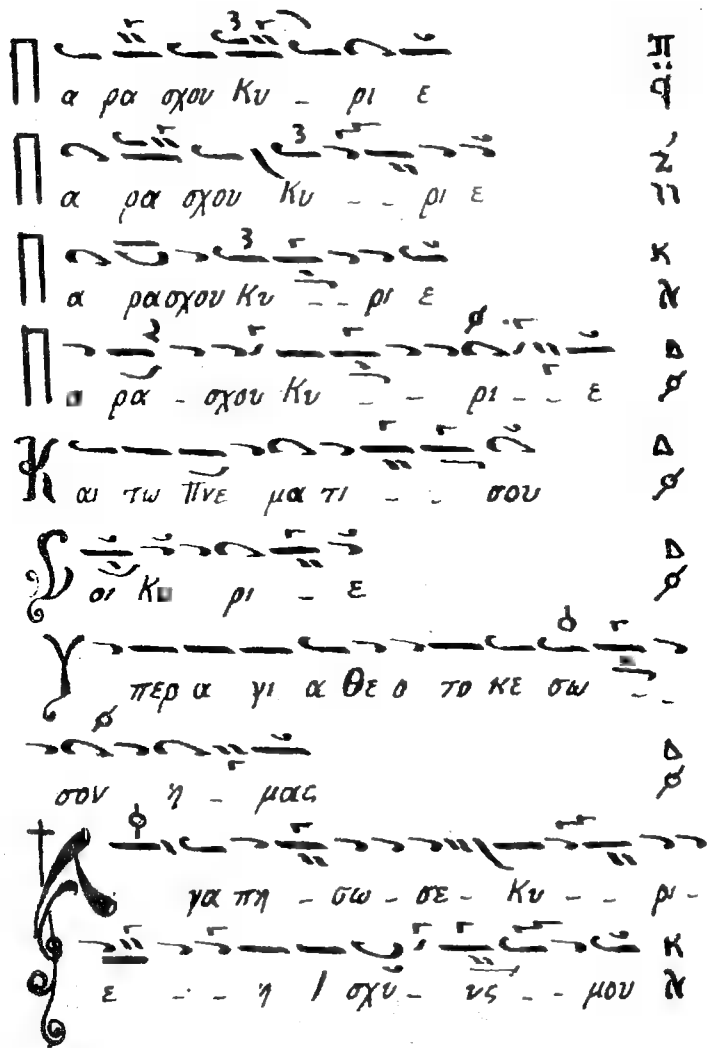 Πα ρα σχου Κυ _ ρι ε
Πα ρα σχου Κυ _ _ ρι ε
Πα ρα σχου Κυ _ _ ρι ε
Πα ρα _ σχου Κυ _ _ ρι _ _ ε
Και τω Πνε μα τι _ _ σου
Σοι Κυ ρι _ ε
Υπερ α γι α Θε ο το κε σω _ _
σον ἡ _ μας
Αγα πη _ σω _ σε _ Κυ _ _ ρι _
ε _ _ ἡ Ι σχυ _ υς _ _ μου